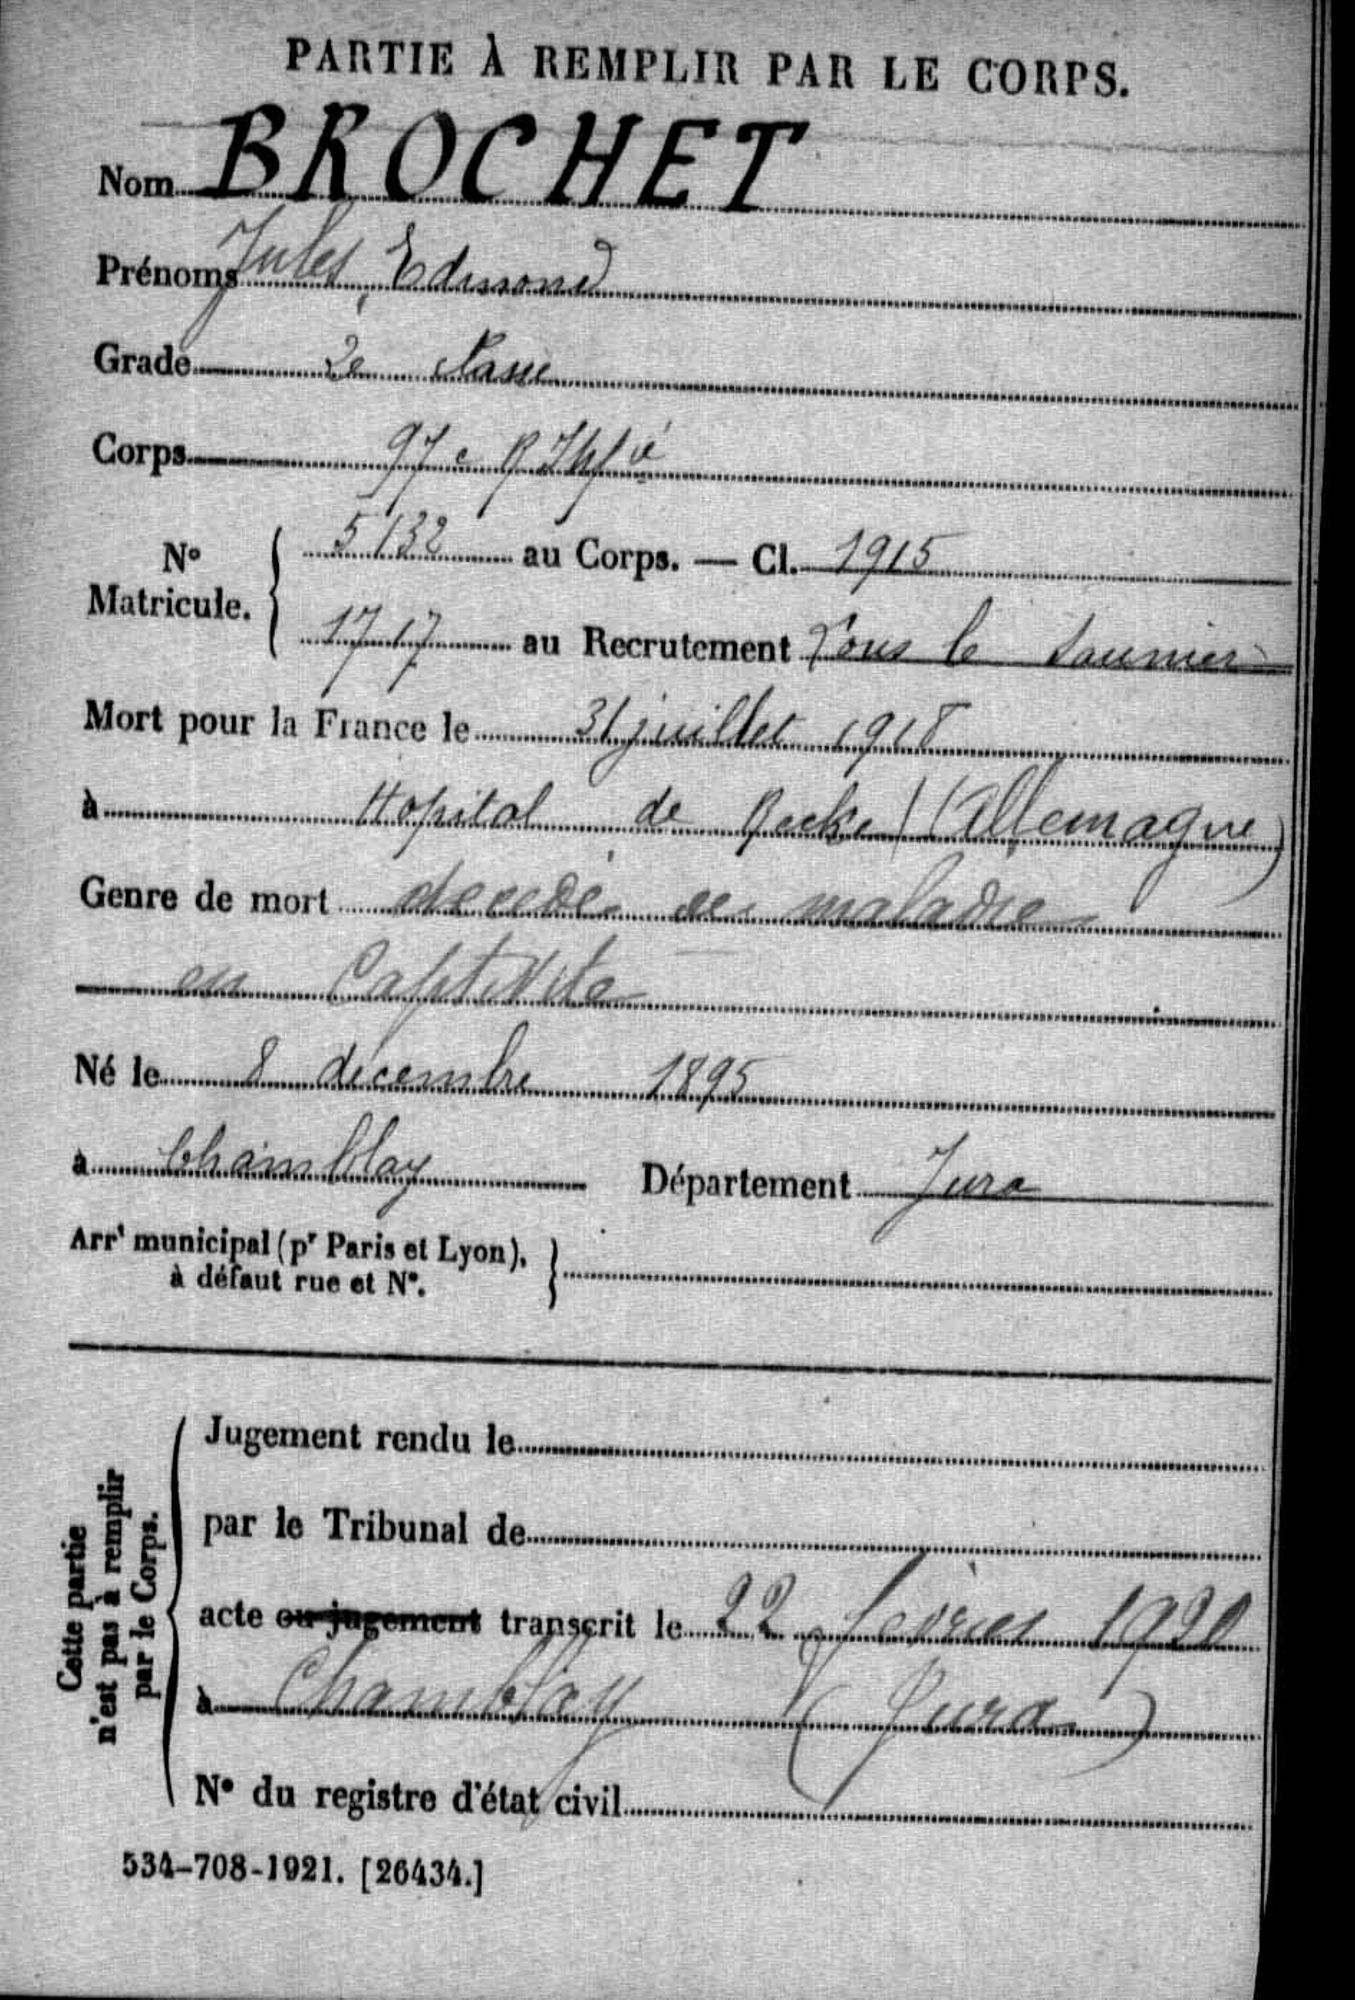 PARTIE À REMPLIR PAR LE CORPS.
Nom BROCHET
Prénoms Jules, Edmond
Grade 2e classe
Corps 97e R Infie
No Matricule. 5132 au Corps. — Cl. 1915
1717 au Recrutement Lons le Saunier
Mort pour la France le 31 juillet 1918
à Hopital de (Allemagne)
Genre de mort décédé de maladie
en Captivité
Né le 8 décembre 1895
à Chamblay Département Jura
Arrt municipal (pr Paris et Lyon),
à défaut rue et N°.
Cette partie
n'est pas à remplir
par le Corps.
Jugement rendu le
par le Tribunal de
acte ou jugement transcrit le 22 février 1920
à Chamblay (Jura)
N° du registre d'état civil
534-708-1921. [26434.]